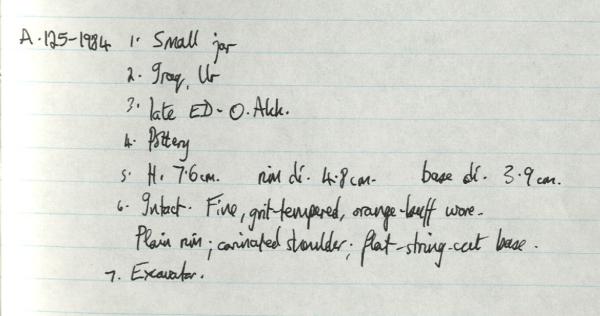 A.125-1984 1. Small jar
2. Iraq, Ur
3. late ED - O. Akk.
4. Pottery
5. H. 7.6cm. rim di. 4.8cm. base di. 3.9cm.
6. Intact. Fine, grit-tempered, orange-buff ware.
Plain rim; carinated shoulder; flat-string-cut base.
7. Excavator.